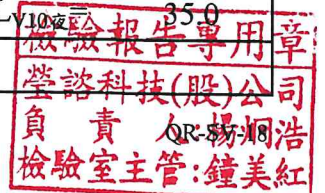 -V10夜三 35.0
檢驗報告專用章
瑩諮科技(股)公司
負責人:楊炯浩
QR-SV-18
檢驗室主管:鐘美紅